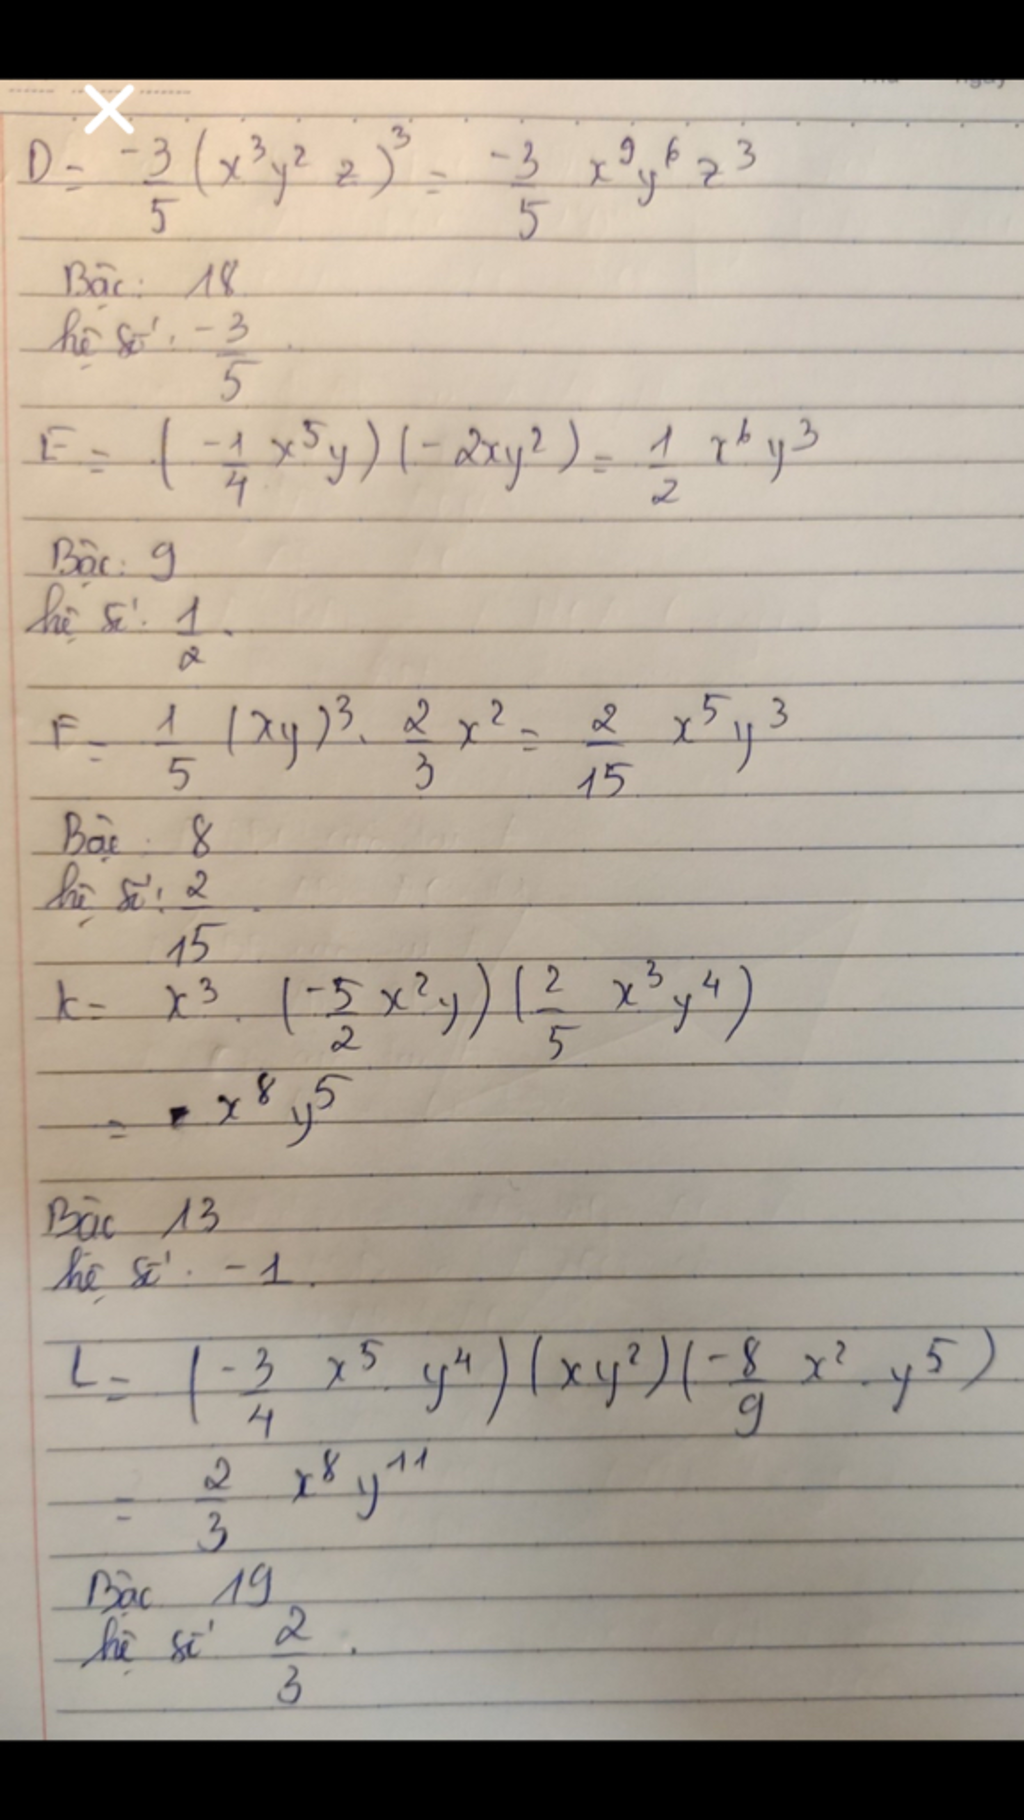 D = -3/5 (x³y² z)³ = -3/5 x⁹y⁶z³
Bậc: 18
hệ số: -3/5.
E = (-1/4 x⁵y)(-2xy²) = 1/2 x⁶y³
Bậc: 9
hệ số: 1/2.
F = 1/5 (xy)³. 2/3 x² = 2/15 x⁵y³
Bậc: 8
hệ số: 2/15.
K = x³. (-5/2 x²y)(2/5 x³y⁴)
= - x⁸y⁵
Bậc 13
hệ số: -1.
L = (-3/4 x⁵. y⁴)(xy²)(-8/9 x². y⁵)
= 2/3 x⁸y¹¹
Bậc 19
hệ số 2/3.